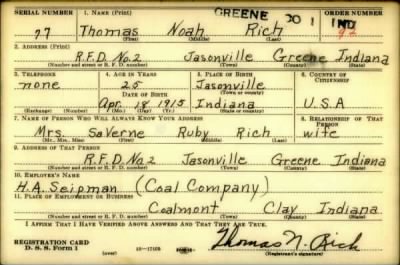 SERIAL NUMBER 1. NAME (Print) GREENE 30 1 IND ORDER NUMBER
77 Thomas Noah Rich
(First) (Middle) (Last)
2. ADDRESS (Print)
R.F.D. No. 2 Jasonville Greene Indiana
(Number and street or R. F. D. number) (Town) (County) (State)
3. TELEPHONE 4. AGE IN YEARS 5. PLACE OF BIRTH 6. COUNTRY OF CITIZENSHIP
none 25 Jasonville
DATE OF BIRTH (Town or county)
Apr. 18 1915 Indiana U.S.A
(Exchange) (Number) (Mo.) (Day) (Yr.) (State or country)
7. NAME OF PERSON WHO WILL ALWAYS KNOW YOUR ADDRESS 8. RELATIONSHIP OF THAT PERSON
Mrs. SaVerne Ruby Rich wife
(Mr., Mrs., Miss) (First) (Middle) (Last)
9. ADDRESS OF THAT PERSON
R.F.D. No. 2 Jasonville Greene Indiana
(Number and street or R. F. D. number) (Town) (County) (State)
10. EMPLOYER'S NAME
H.A. Seipman (Coal Company)
11. PLACE OF EMPLOYMENT OR BUSINESS
Coalmont Clay Indiana
(Number and street or R. F. D. number) (Town) (County) (State)
I AFFIRM THAT I HAVE VERIFIED ABOVE ANSWERS AND THAT THEY ARE TRUE.
REGISTRATION CARD
D. S. S. Form 1 (over) Thomas N. Rich
(Registrant's signature)